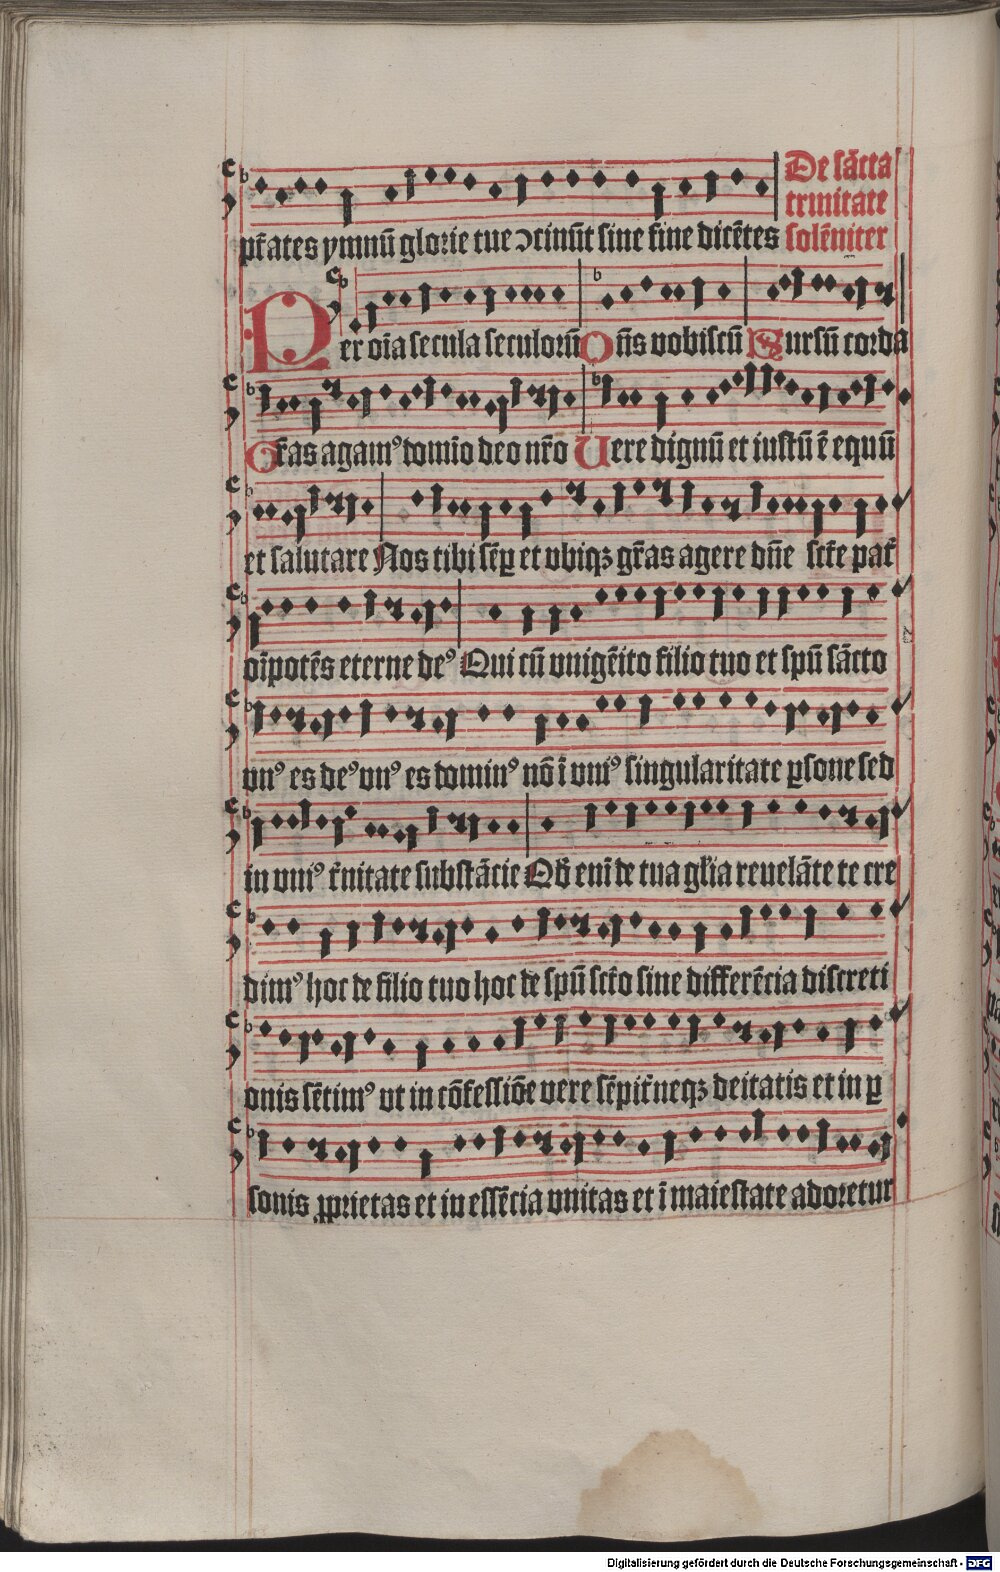 pt̄ates ymnū glorie tue ↄcinūt sine fine dicētes
De sācta
trinitate
solēniter
Per oīa secula seculorū Oñs vobiscū Sursū corda
Gr̄as agamꝰ domīo deo nr̄o Uere dignū et iustū ē equū
et salutare Nos tibi sēꝑ et vbiqꝫ gr̄as agere dn̄e sct̄e pat̄
oīpotēs eterne deꝰ Qui cū vnigēito filio tuo et spū sācto
vnꝰ es deꝰ vnꝰ es dominꝰ nō ī vniꝰ singularitate ꝑsone sed
in vniꝰ t̄nitate substācie Qd̄ enī de tua glīa reuelāte te cre
dimꝰ hoc de filio tuo hoc de spū sct̄o sine differēcia discreti
onis sētimꝰ ut in cōfessiōe vere sēpit̄neqꝫ deitatis et in ꝑ
sonis ꝓprietas et in essēcia vnitas et ī maiestate adoretur
Digitalisierung gefördert durch die Deutsche Forschungsgemeinschaft - DFG